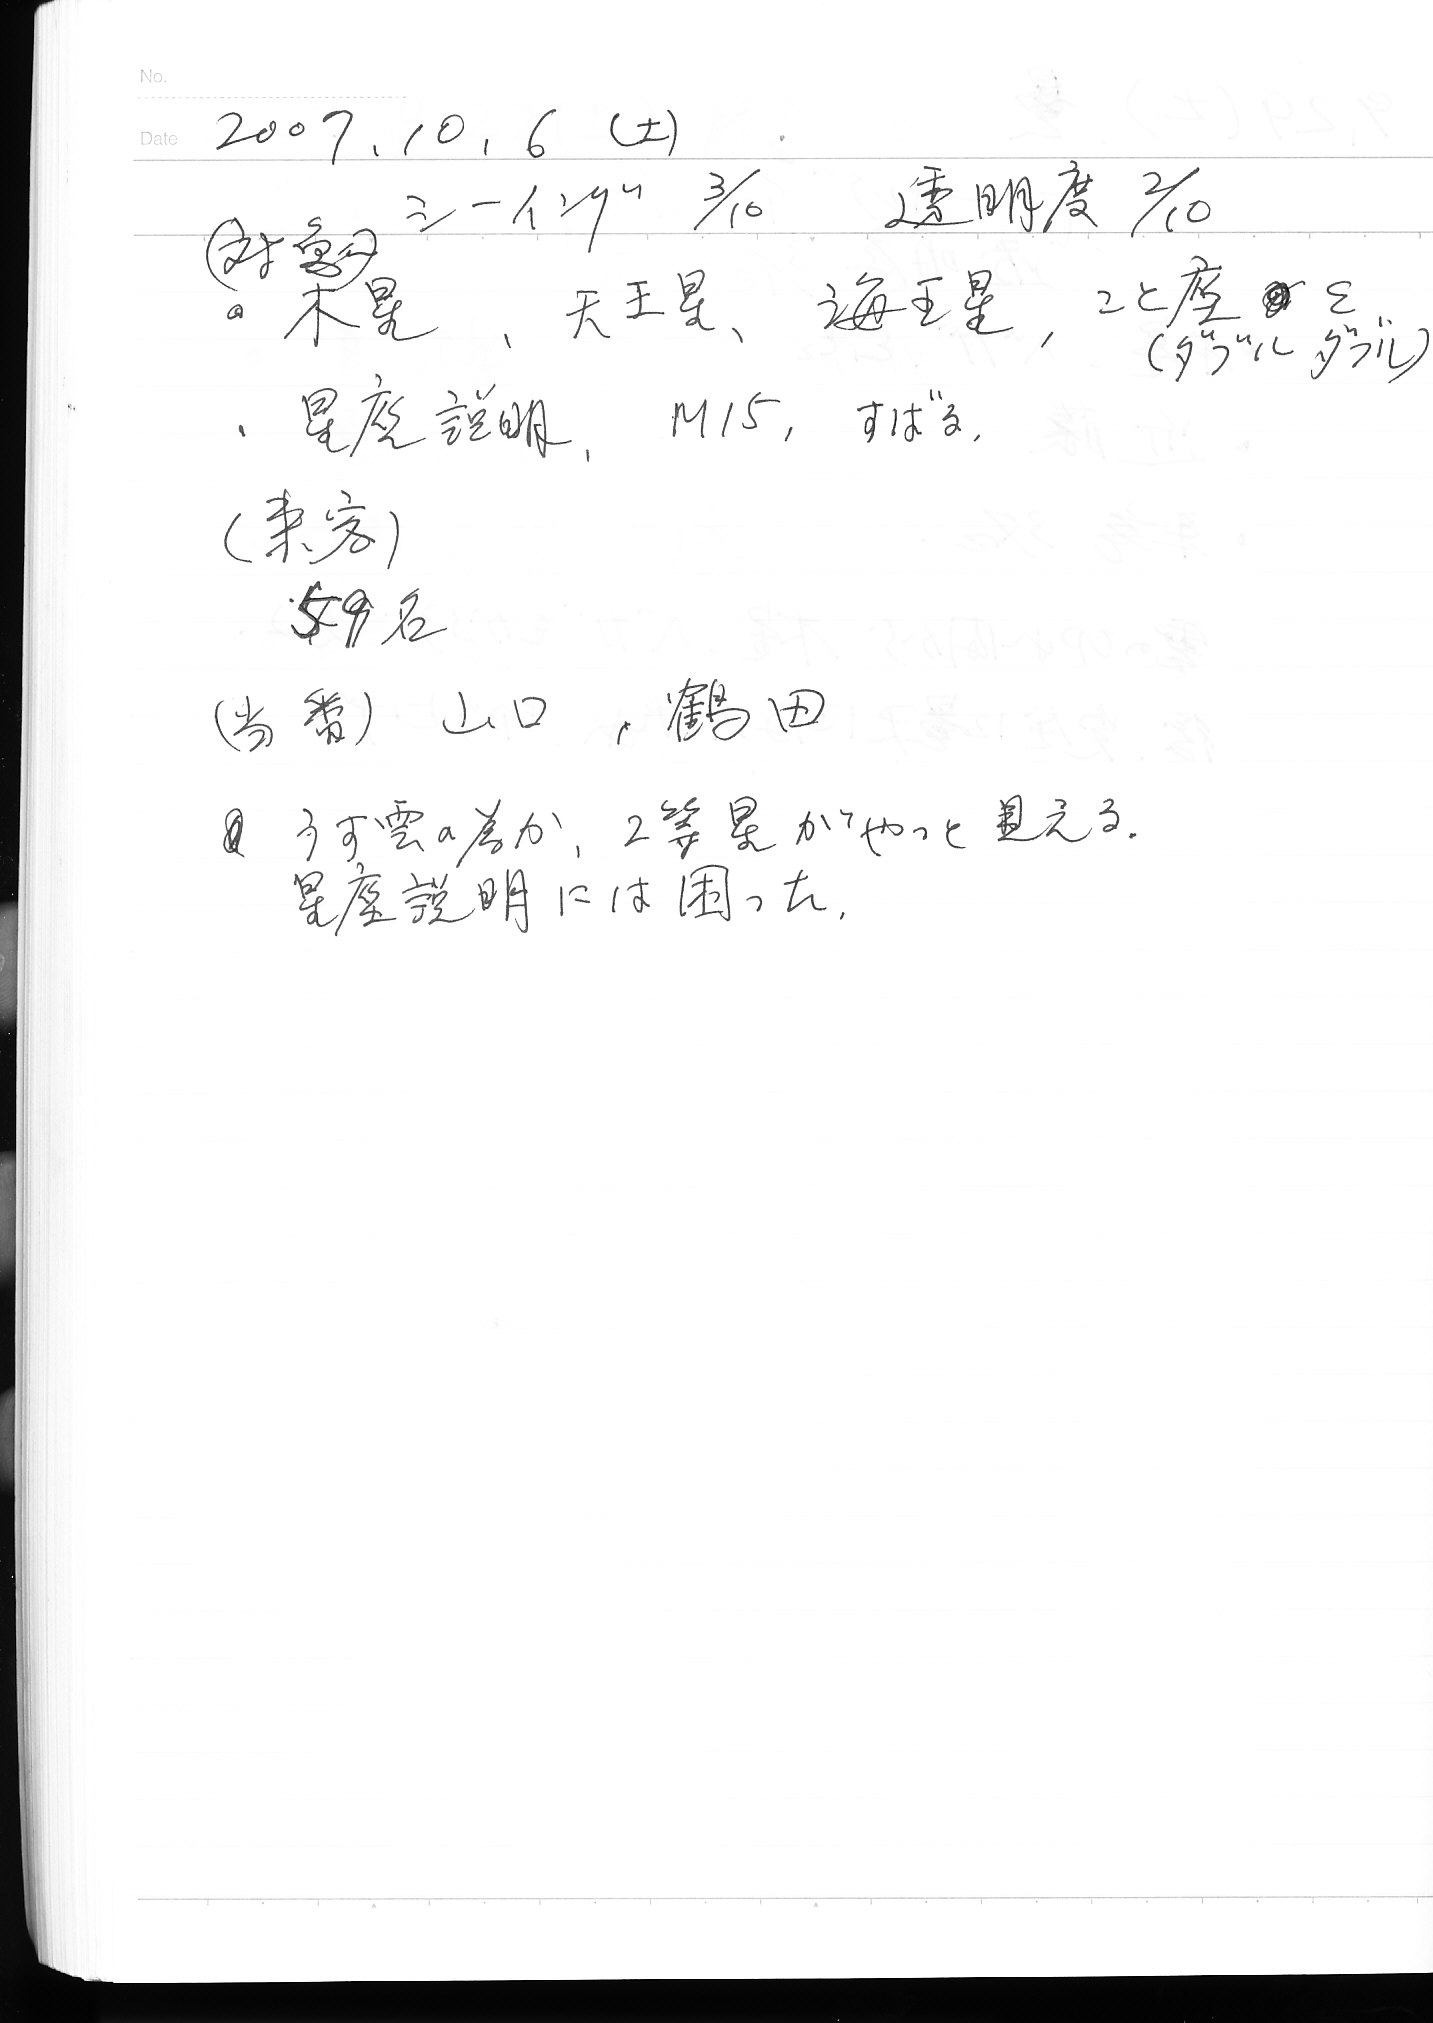 No.
Date 2007.10.6 (土)
シーイング 3/10 透明度 2/10
(対象)
・木星、天王星、海王星, こと座 ε
(ダブルダブル)
・星座説明, M15, すばる,
(来客)
59名
(当番) 山口, 鶴田
うす雲の為か, 2等星がやっと見える.
星座説明には困った.